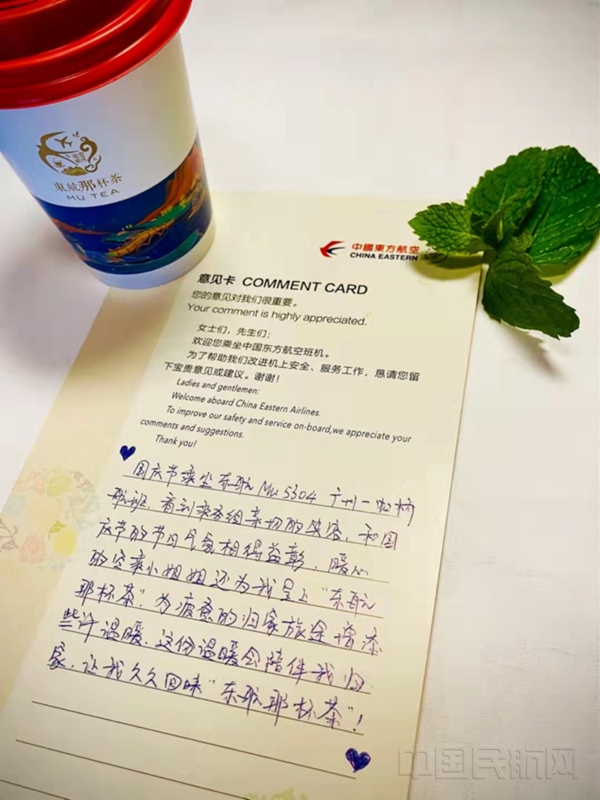 東航那杯茶
MU TEA
中國東方航空
CHINA EASTERN
意见卡 COMMENT CARD
您的意见对我们很重要。
Your comment is highly appreciated.
女士们，先生们：
欢迎您乘坐中国东方航空班机。
为了帮助我们改进机上安全、服务工作，恳请您留
下宝贵意见或建议。谢谢！
Ladies and gentlemen:
Welcome aboard China Eastern Airlines.
To improve our safety and service on-board, we appreciate your
comments and suggestions.
Thank you!
国庆节乘坐东航MU5304 广州一
航班，看到乘务组亲切的笑容，和国
庆节的节日气氛相得益彰，暖心
的空乘小姐姐还为我呈上“东航
那杯茶”，为疲惫的归家旅途增添
些许温暖，这份温暖会陪伴我归
家，让我久久回味“东航那杯茶”！
中国民航网